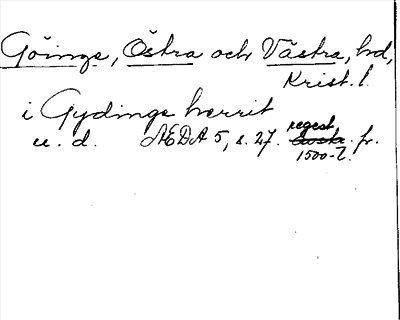 Göinge, Östra och Västra, hd,
Krist. l.
i Gydinge herrit
u. d. ÆDA 5, s. 27. regest fr.
1500-t.